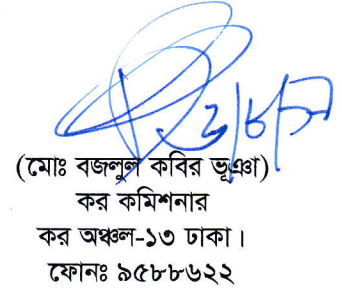 (মোঃ বজলুল কবির ভূঞা)
কর কমিশনার
কর অঞ্চল-১৩ ঢাকা।
ফোনঃ ৯৫৮৮৬২২